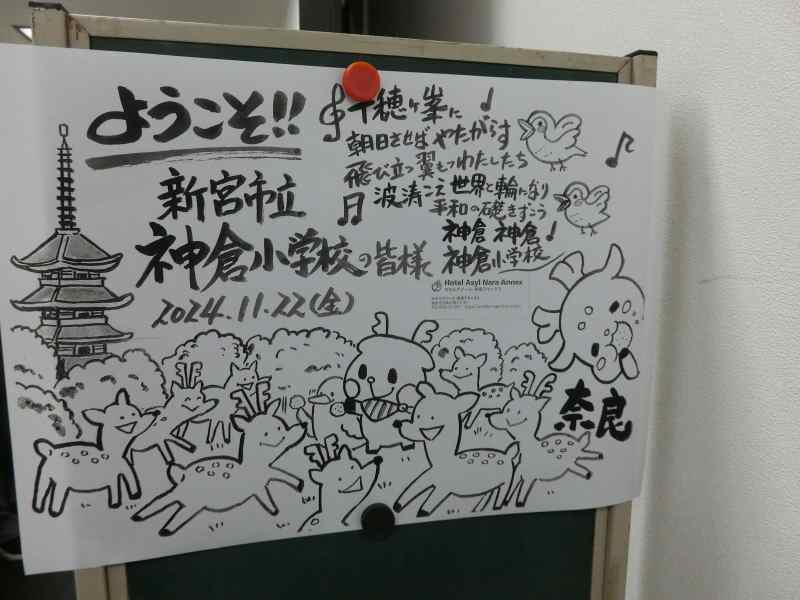 ようこそ!!
新宮市立
神倉小学校の皆様
2024.11.22(金)
千穂ヶ峯に
朝日させば やたがらす
飛び立つ翼もつわたしたち
波涛こえ 世界と輪になり
平和の礎きずこう
神倉 神倉
神倉小学校
Hotel Asyl Nara Annex
奈良